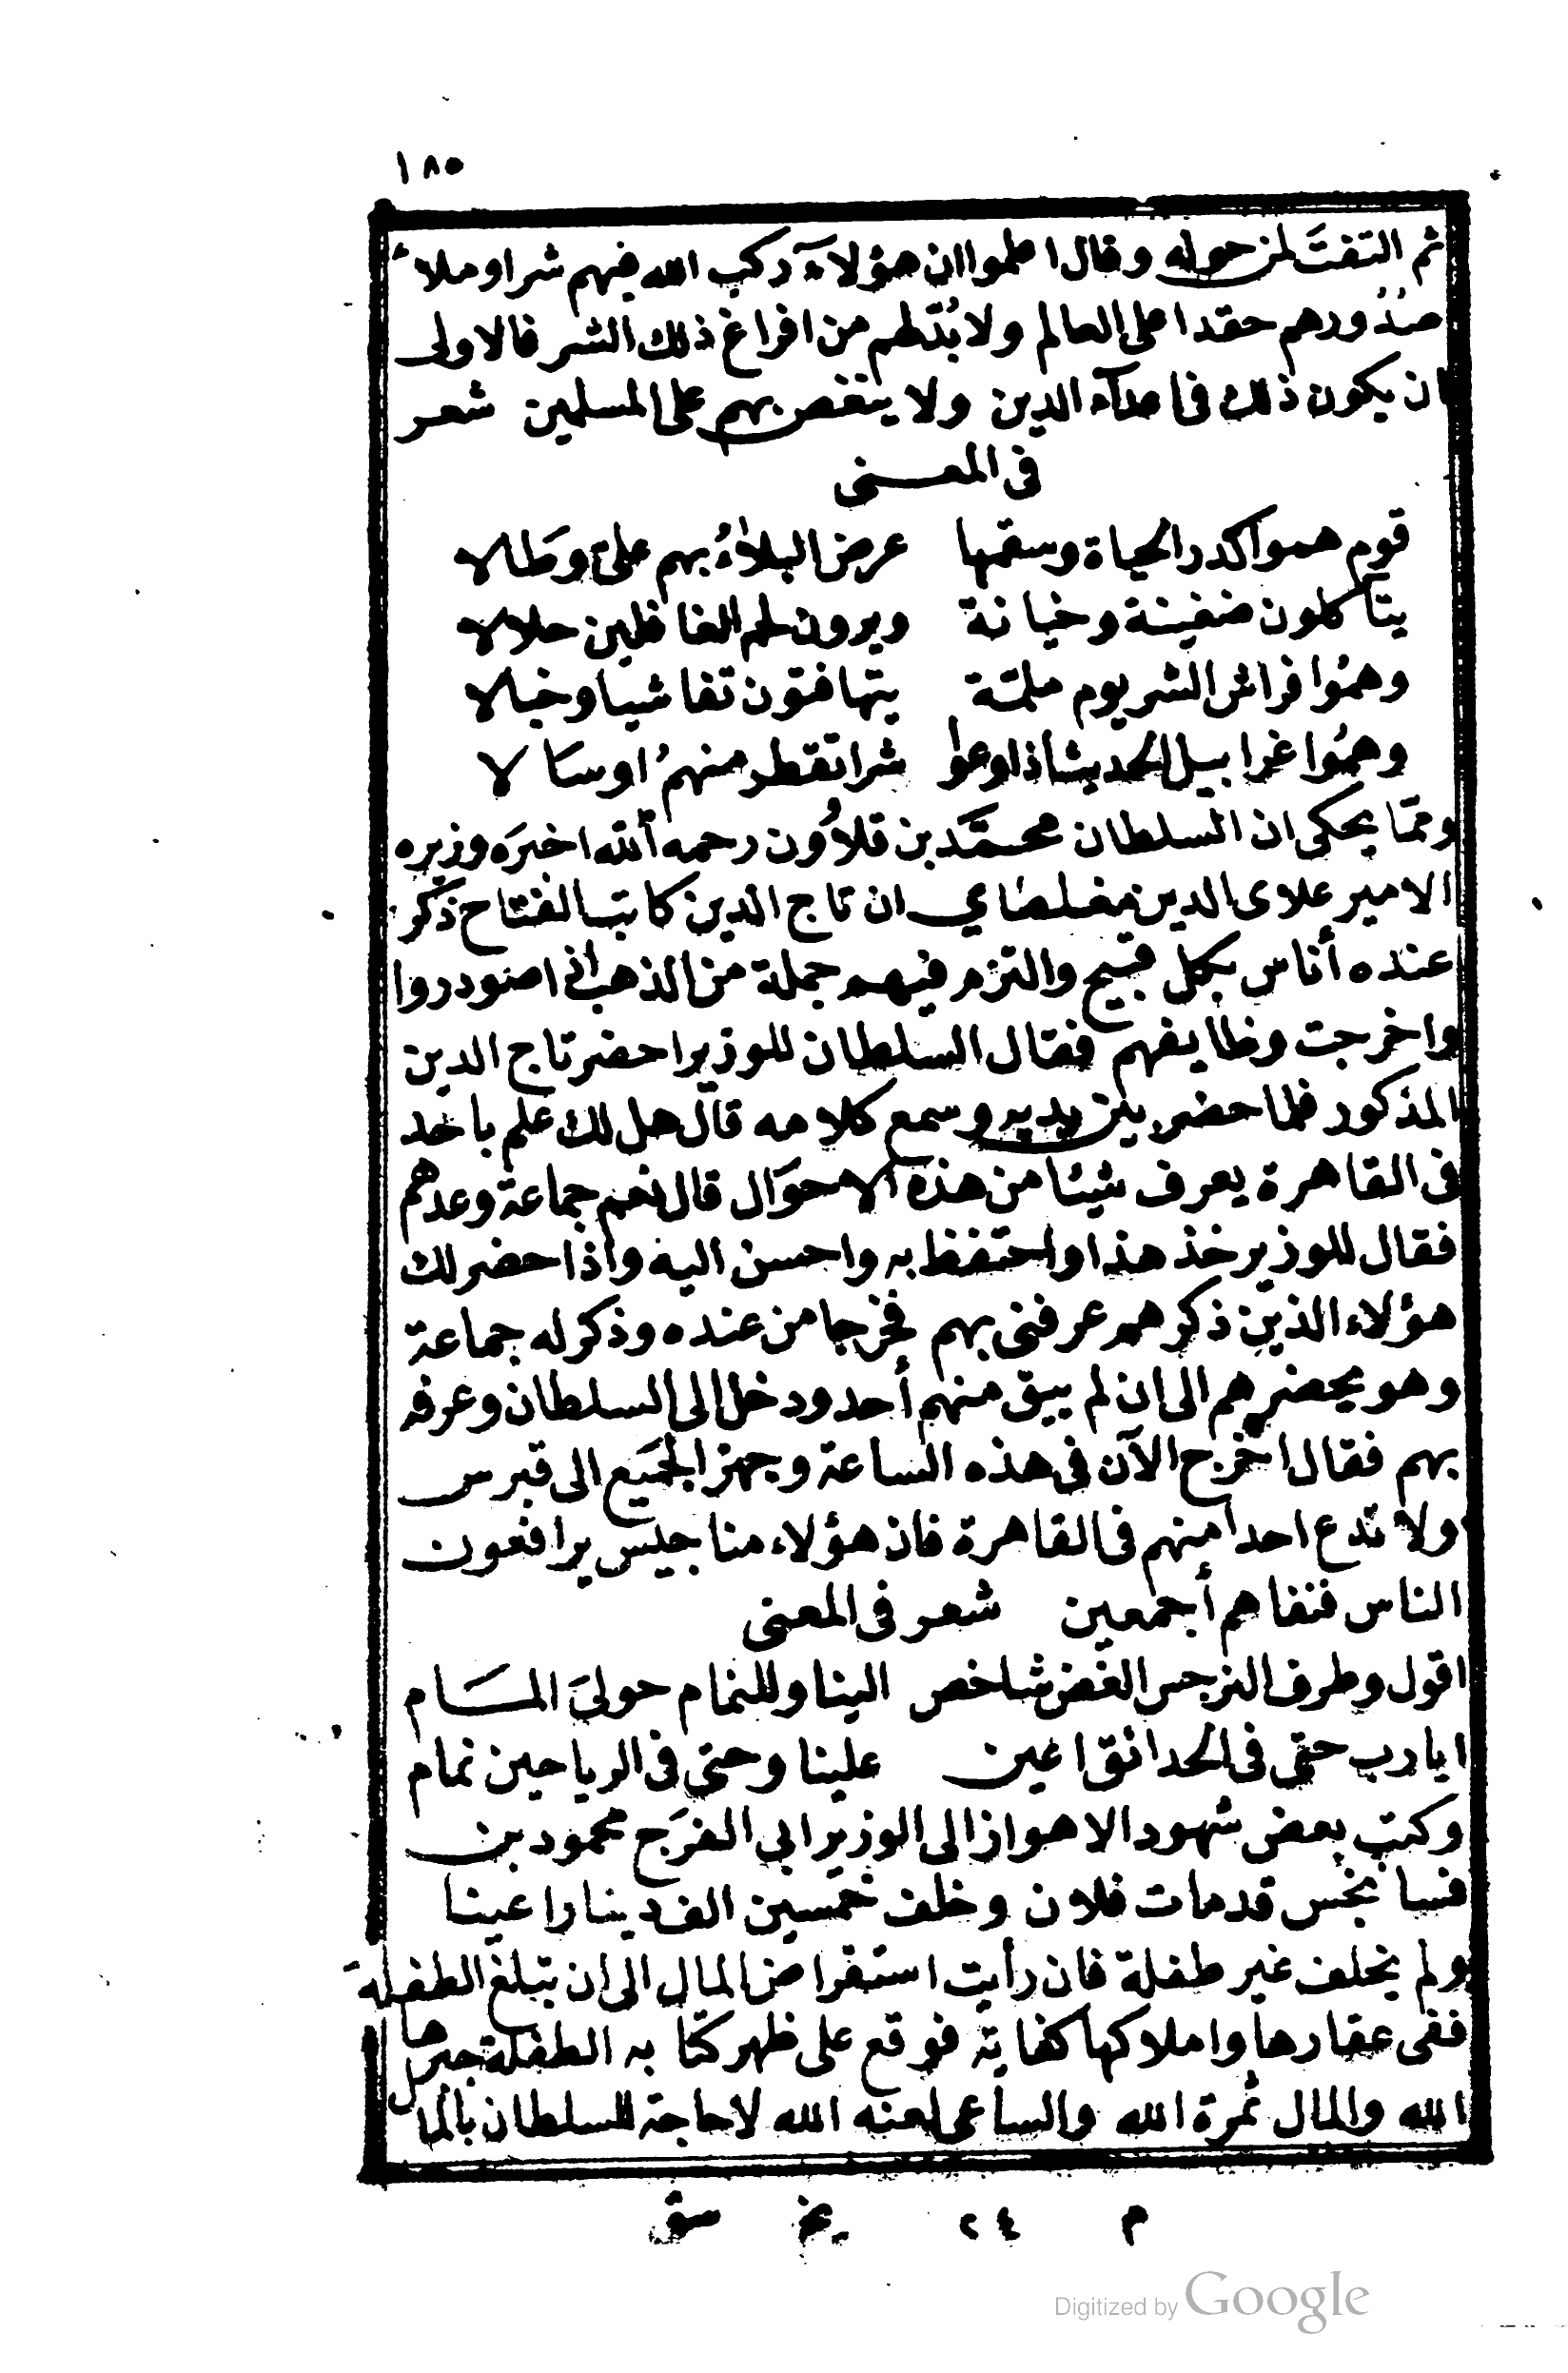 ١٨٥
ثم التفتَ لمن حوله وقال اعلموا ان هؤلاَء ركب الله فيهم شرا وملاء
صدُورهم حقدا على العالم ولا بُدّ لهم من افراغ ذلك الشر فالاولى
ان يكون ذلك فى اعدآء الدين ولا ينغص بهم على المسلمين شعر
فى المعنى
قوم همو اكدر الحياة وسقمها عرض البلاءُ بهم علىّ وطَالا
يتاكلون ضغينة وخيانة ويرون لحم الغافلين حلالا
وهمُوا فراش الشر يوم ملمّة يتهافتون تغاشيا وخبالا
وهمُوا غرابيل الحديث اذا وعوا شرا تقطر منهمُ او سَالا
وممّا يحكى ان السلطان محمَّد بن قلاوُن رحمه الله اخبرَه وزيره
الامير علاى الدين مغلطاي ان تاج الدين كاتب الفتاح ذكر
عنده أناس بكل قبيح والتزم فيهم جملة من الذهب اذا صودروا
واخرجت وظايفهم فقال السلطان للوزير احضر تاج الدين
المذكور فلما حضر بين يديه وسمع كلامه قال هل لك علم باحد
فى القاهرة يعرف شيئا من هذه الاحوَال قال نعم جماعة وعدهم
فقال للوزير خذ هذا واحتفظ به واحسن اليه واذا حضر لك
هؤلاء الذين ذكرهم عرفنى بهم فخرجا من عنده وذكر له جماعة
وهو يحضرهم الى ان لم يبق منهم أحد ودخل الى السلطان وعرفه
بهم فقال اخرج الآن فى هذه الساعة وجهز الجَميع الى قبرس
ولا تدع احدا منهم فى القاهرة فان هؤلاء مناجيس يرافعون
الناس فنفاهم أجمعين شعر فى المعنى
اقول وطرف النرجس الغض شاخص الينا وللنمام حولىَ المسَام
ايا رب حتى فى الحدائق اعين علينا وحتى فى الرياحين نمام
وكتب بعض شهود الاهواز الى الوزير ابى الفرَج محمود بن
فسانجس قد مات فلان وخلف خمسين الف دينارا عينا
ولم يخلف غير طفلة فان رأيت استقراض المال الى ان تبلغ الطفلة
ففى عقارها واملاكها كفاية فوقع على ظهر كتابه الطفلة جبرها
الله والمال ثمرة الله والساعى لعنه الله لا حاجة للسلطان بالمال
م ٢٤